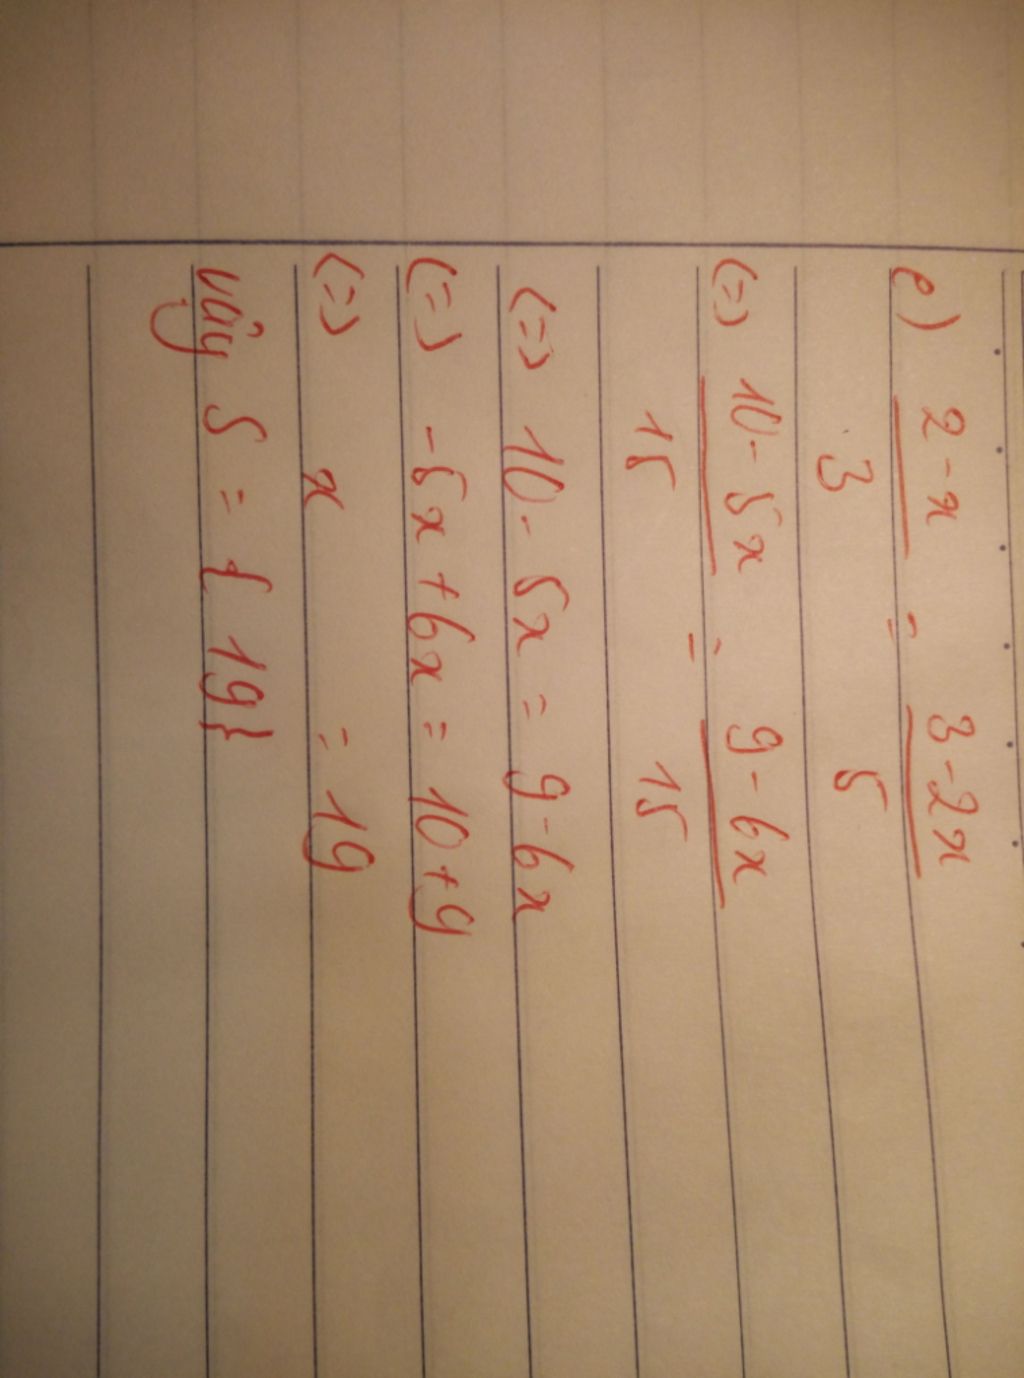 e) 2-x = 3-2x
3 5
(=) 10-5x = 9-6x
15 15
(=) 10-5x = 9-6x
(=) -5x+6x = 10+9
(=) x = 19
vậy S = { 19}